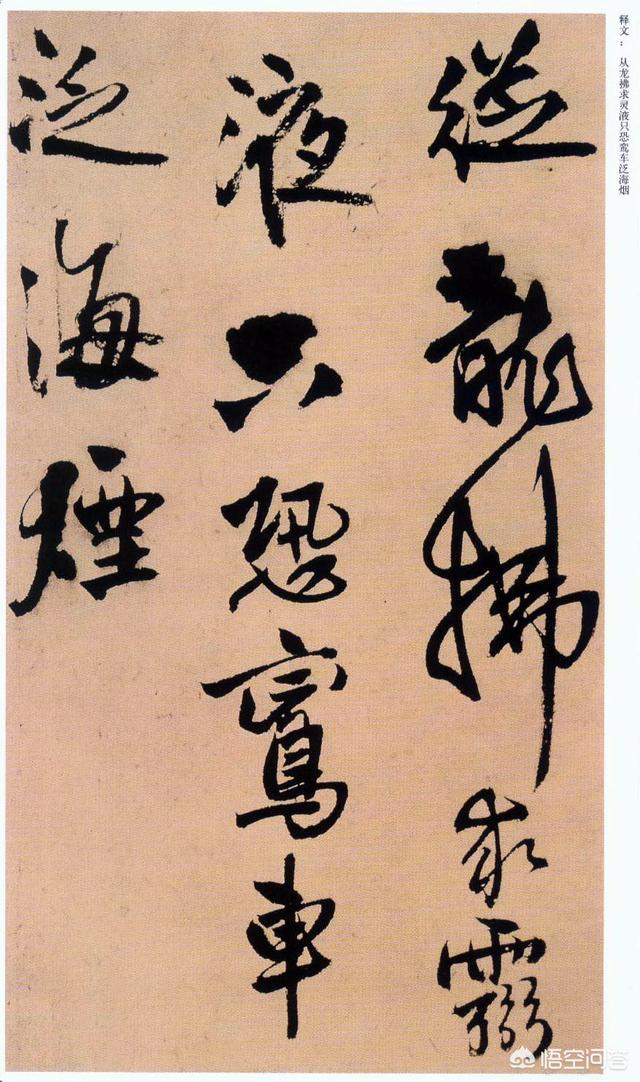 释文： 从龙拂求灵液只恐鸾车泛海烟
從龍拂求靈
液只恐鸞車
泛海煙
悟空问答